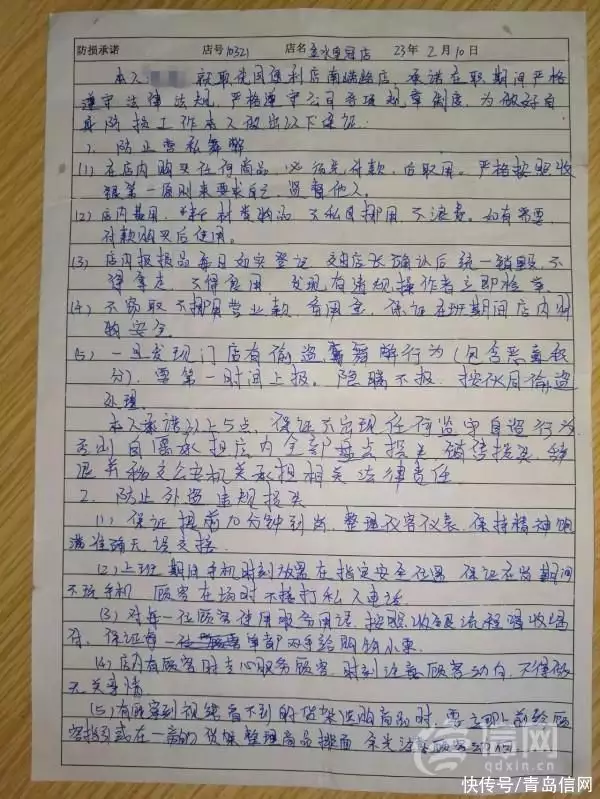 防损承诺 店号10321 店名 金水皇冠店 23年2月10日
本人 就职友客便利店 店,承诺在职期间严格
遵守法律法规,严格遵守公司各项规章制度,为做好自
身防损工作本人做出以下保证:
1、防止营私舞弊
(1)在店内购买任何商品,必须先付款,后取用。严格按照收
银第一原则来要求自己,监督他人。
(2)店内费用、 材类物品,不私自挪用、不浪费。如有需要
付款购买后使用。
(3)店内报损品每日如实登记,交由店长确认后统一销毁,不
得拿走,不得食用,发现有违规操作者立即检举。
(4)不窃取不挪用营业款、备用金,保证在班期间店内财
物安全。
(5)一旦发现门店有偷盗、舞弊行为(包含恶意积
分),要第一时间上报。隐瞒不报,按伙同偷盗
处理。
本人承诺以上5点,保证不出现任何监守自盗行为
否则自愿承担店内全部盘点损失、销售损失,
退并移交公安机关承担相关法律责任
2、防止外盗违规损失
(1)保证提前10分钟到岗,整理仪容仪表,保持精神饱
满准确无误交接。
(2)上班期间手机时刻放置在指定安全位置,保证在岗期间
不玩手机,顾客在场时不接打私人电话。
(3)对每一位顾客使用服务用语,按照收银流程唱收唱
付,保证每一位顾客单都双手给购物小票。
(4)店内有顾客时专心服务顾客,时刻注意顾客动向,不得做
无关事情
(5)有顾客到视线看不到的货架选购商品时,要立即上前给顾
客指引或在一旁的货架整理商品排面,余光注
信网
qdxin.cn
快传号/青岛信网